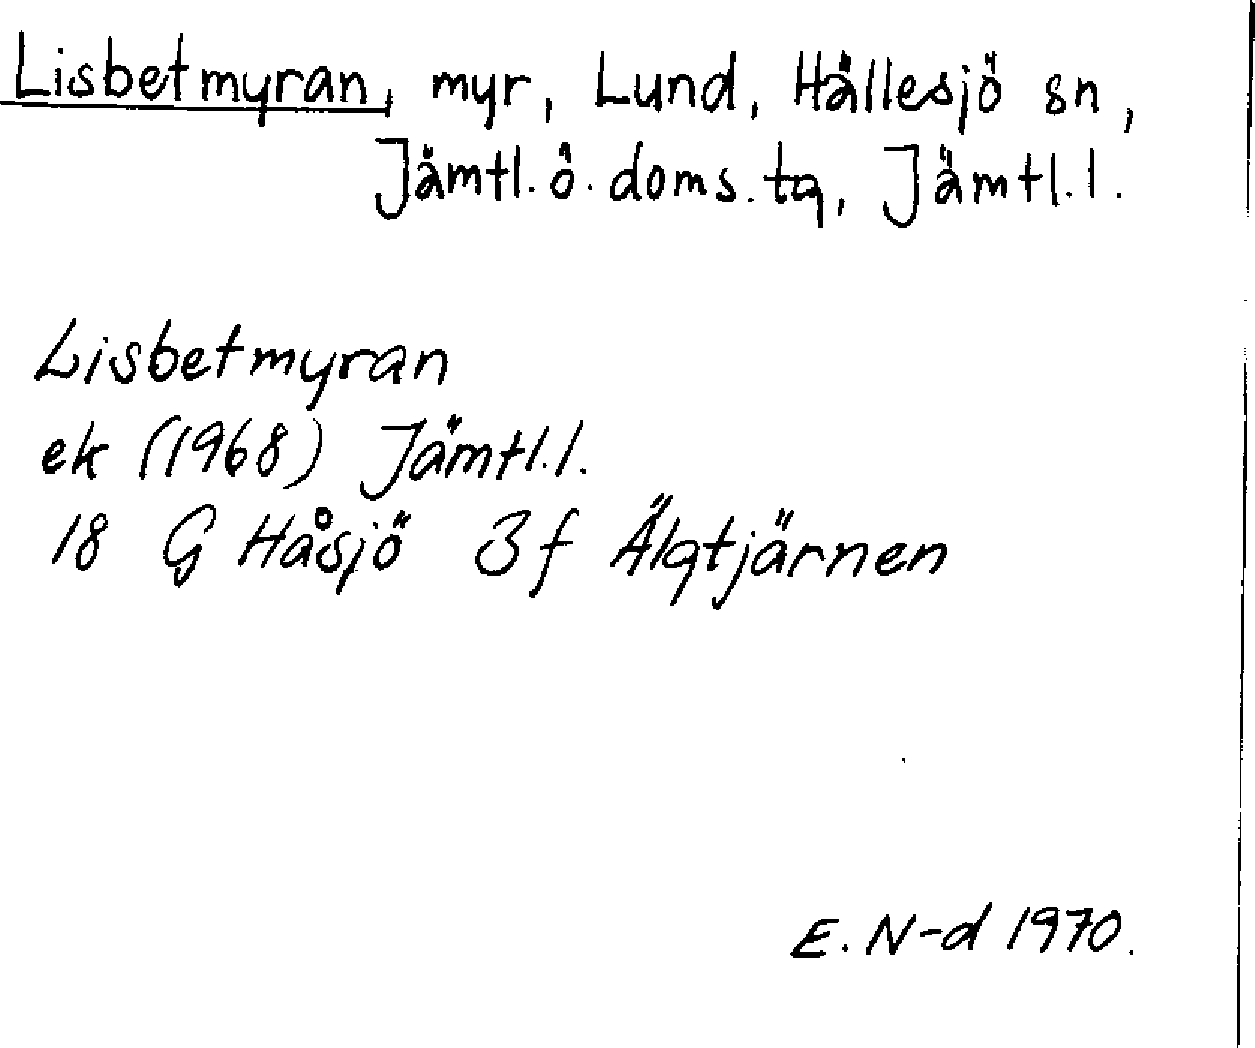 Lisbetmyran, myr, Lund, Hällesjö sn,
Jämtl. ö. doms. tg, Jämtl. l.
Lisbetmyran
ek (1968) Jämtl. l.
18 G Håsjö 3f Älgtjärnen
E. N-d 1970.